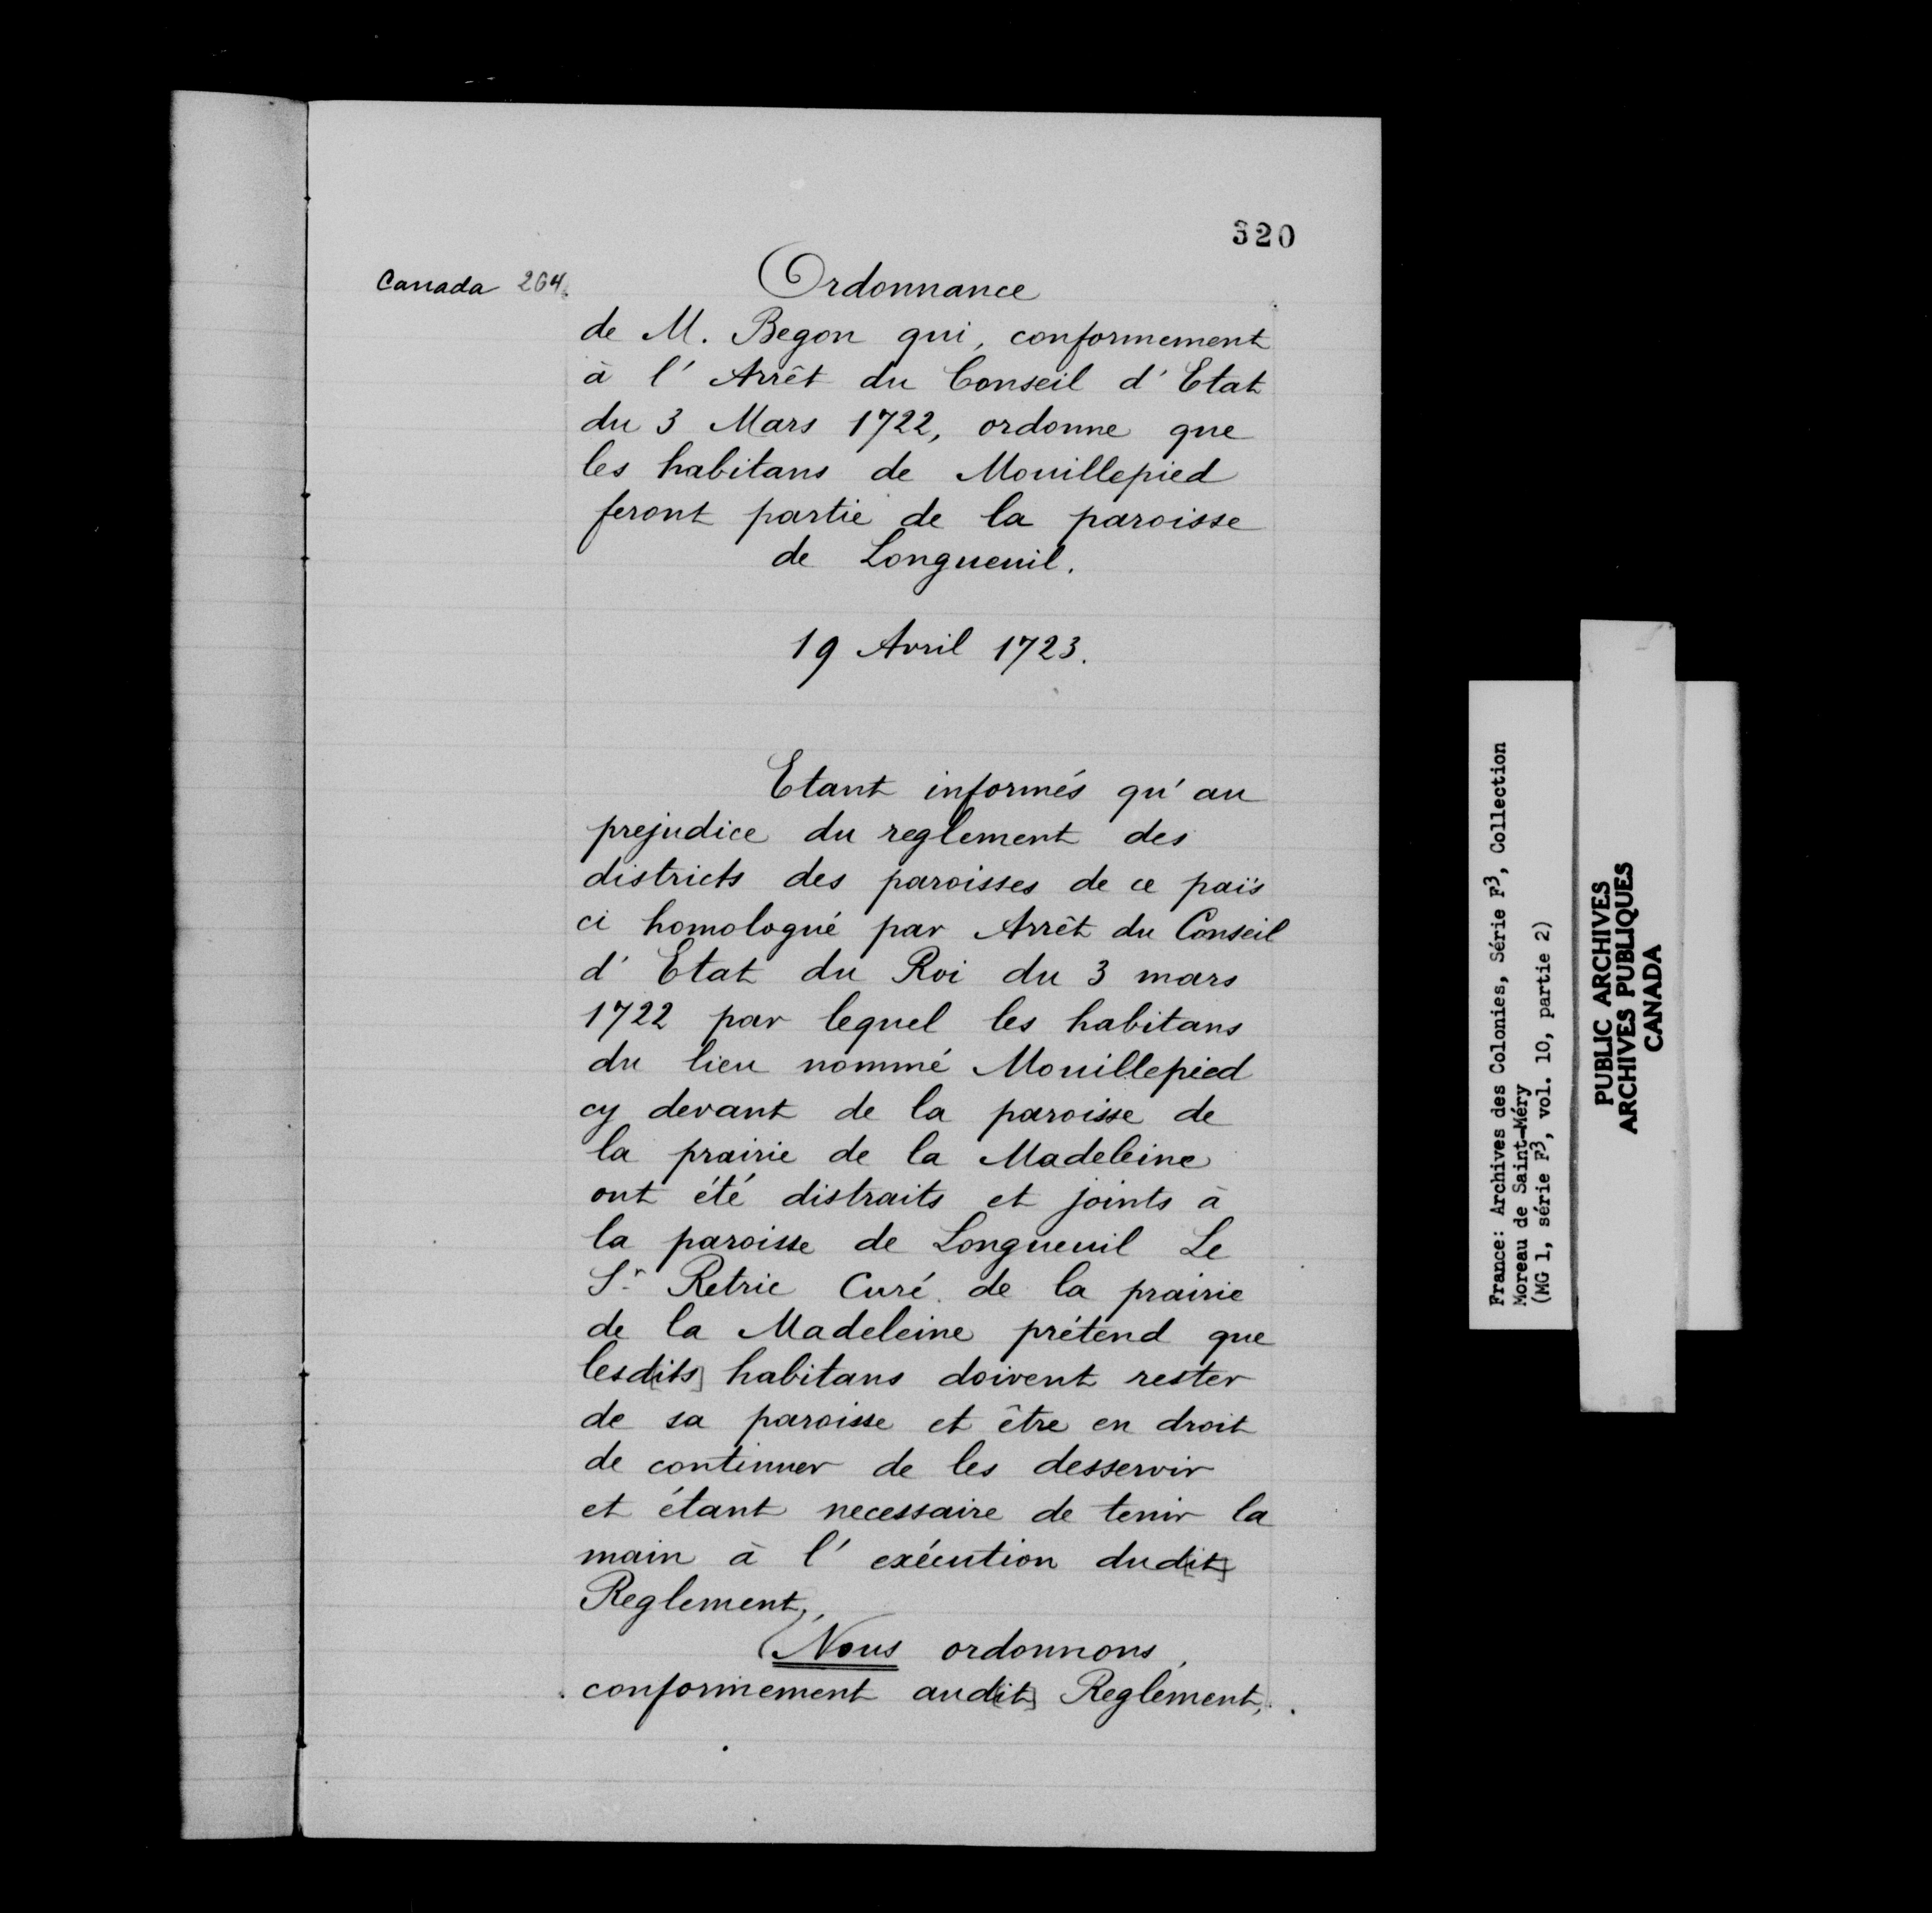 320
Canada 264.
Ordonnance
de M. Begon qui, conformement
à l' Arrêt du Conseil d' Etat
du 3 Mars 1722, ordonne que
les habitans de Mouillepied
feront partie de la paroisse
de Longueuil.
19 Avril 1723.
Etant informés qu' au
prejudice du reglement des
districts des paroisses de ce païs
ci homologué par Arrêt du Conseil
d' Etat du Roi du 3 mars
1722 par lequel les habitans
du lieu nommé Mouillepied
cy devant de la paroisse de
la prairie de la Madeleine
ont été distraits et joints à
la paroisse de Longueuil Le
Sr Retric Curé de la prairie
de la Madeleine prétend que
lesd[its] habitans doivent rester
de sa paroisse et être en droit
de continuer de les desservir
et étant necessaire de tenir la
main à l' exécution dud[it]
Reglement,
Nous ordonnons,
conformement aud[it] Reglement,
France: Archives des Colonies, Série F3, Collection
Moreau de Saint-Méry
(MG 1, série F3, vol. 10, partie 2)
PUBLIC ARCHIVES
ARCHIVES PUBLIQUES
CANADA